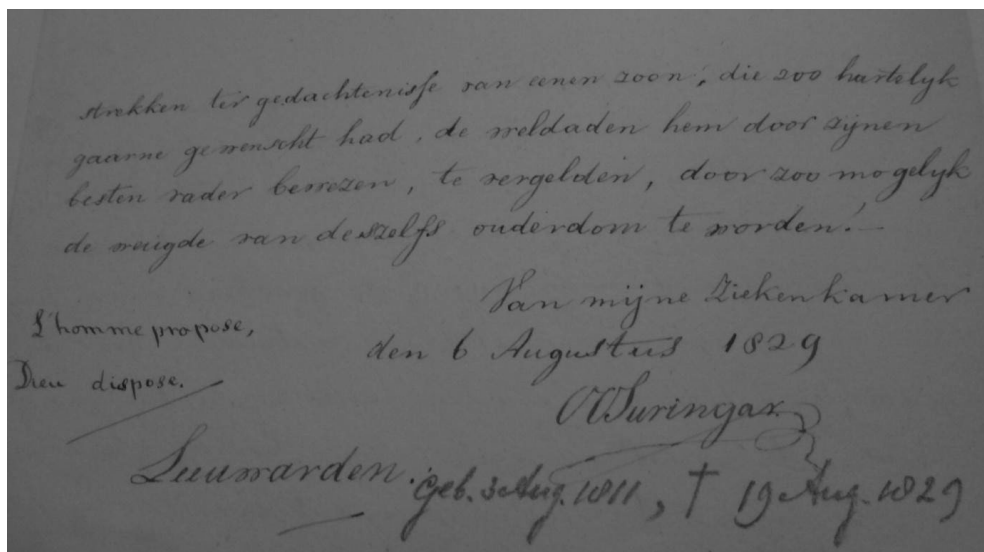 strekken ter gedachtenisse van eenen zoon, die zoo hartelyk
gaarne gewenscht had, de weldaden hem door zijnen
besten vader bewezen, te vergelden, door zoo mogelyk
de vreugde van deszelfs ouderdom te worden!
Van mijne Ziekenkamer
L'homme propose,
den 6 Augustus 1829
Dieu dispose.
Suringar
Leeuwarden.
Geb. 3 Aug. 1811, † 19 Aug. 1829